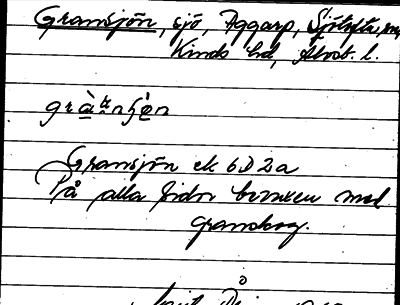 Gransjön, sjö, Aggarp, Sjötofta, sn,
Kinds hd, Älvsb. l.
gràn̥ʂön
Gransjön ek 6D2a
På alla sidor bevuxen med
granskog.